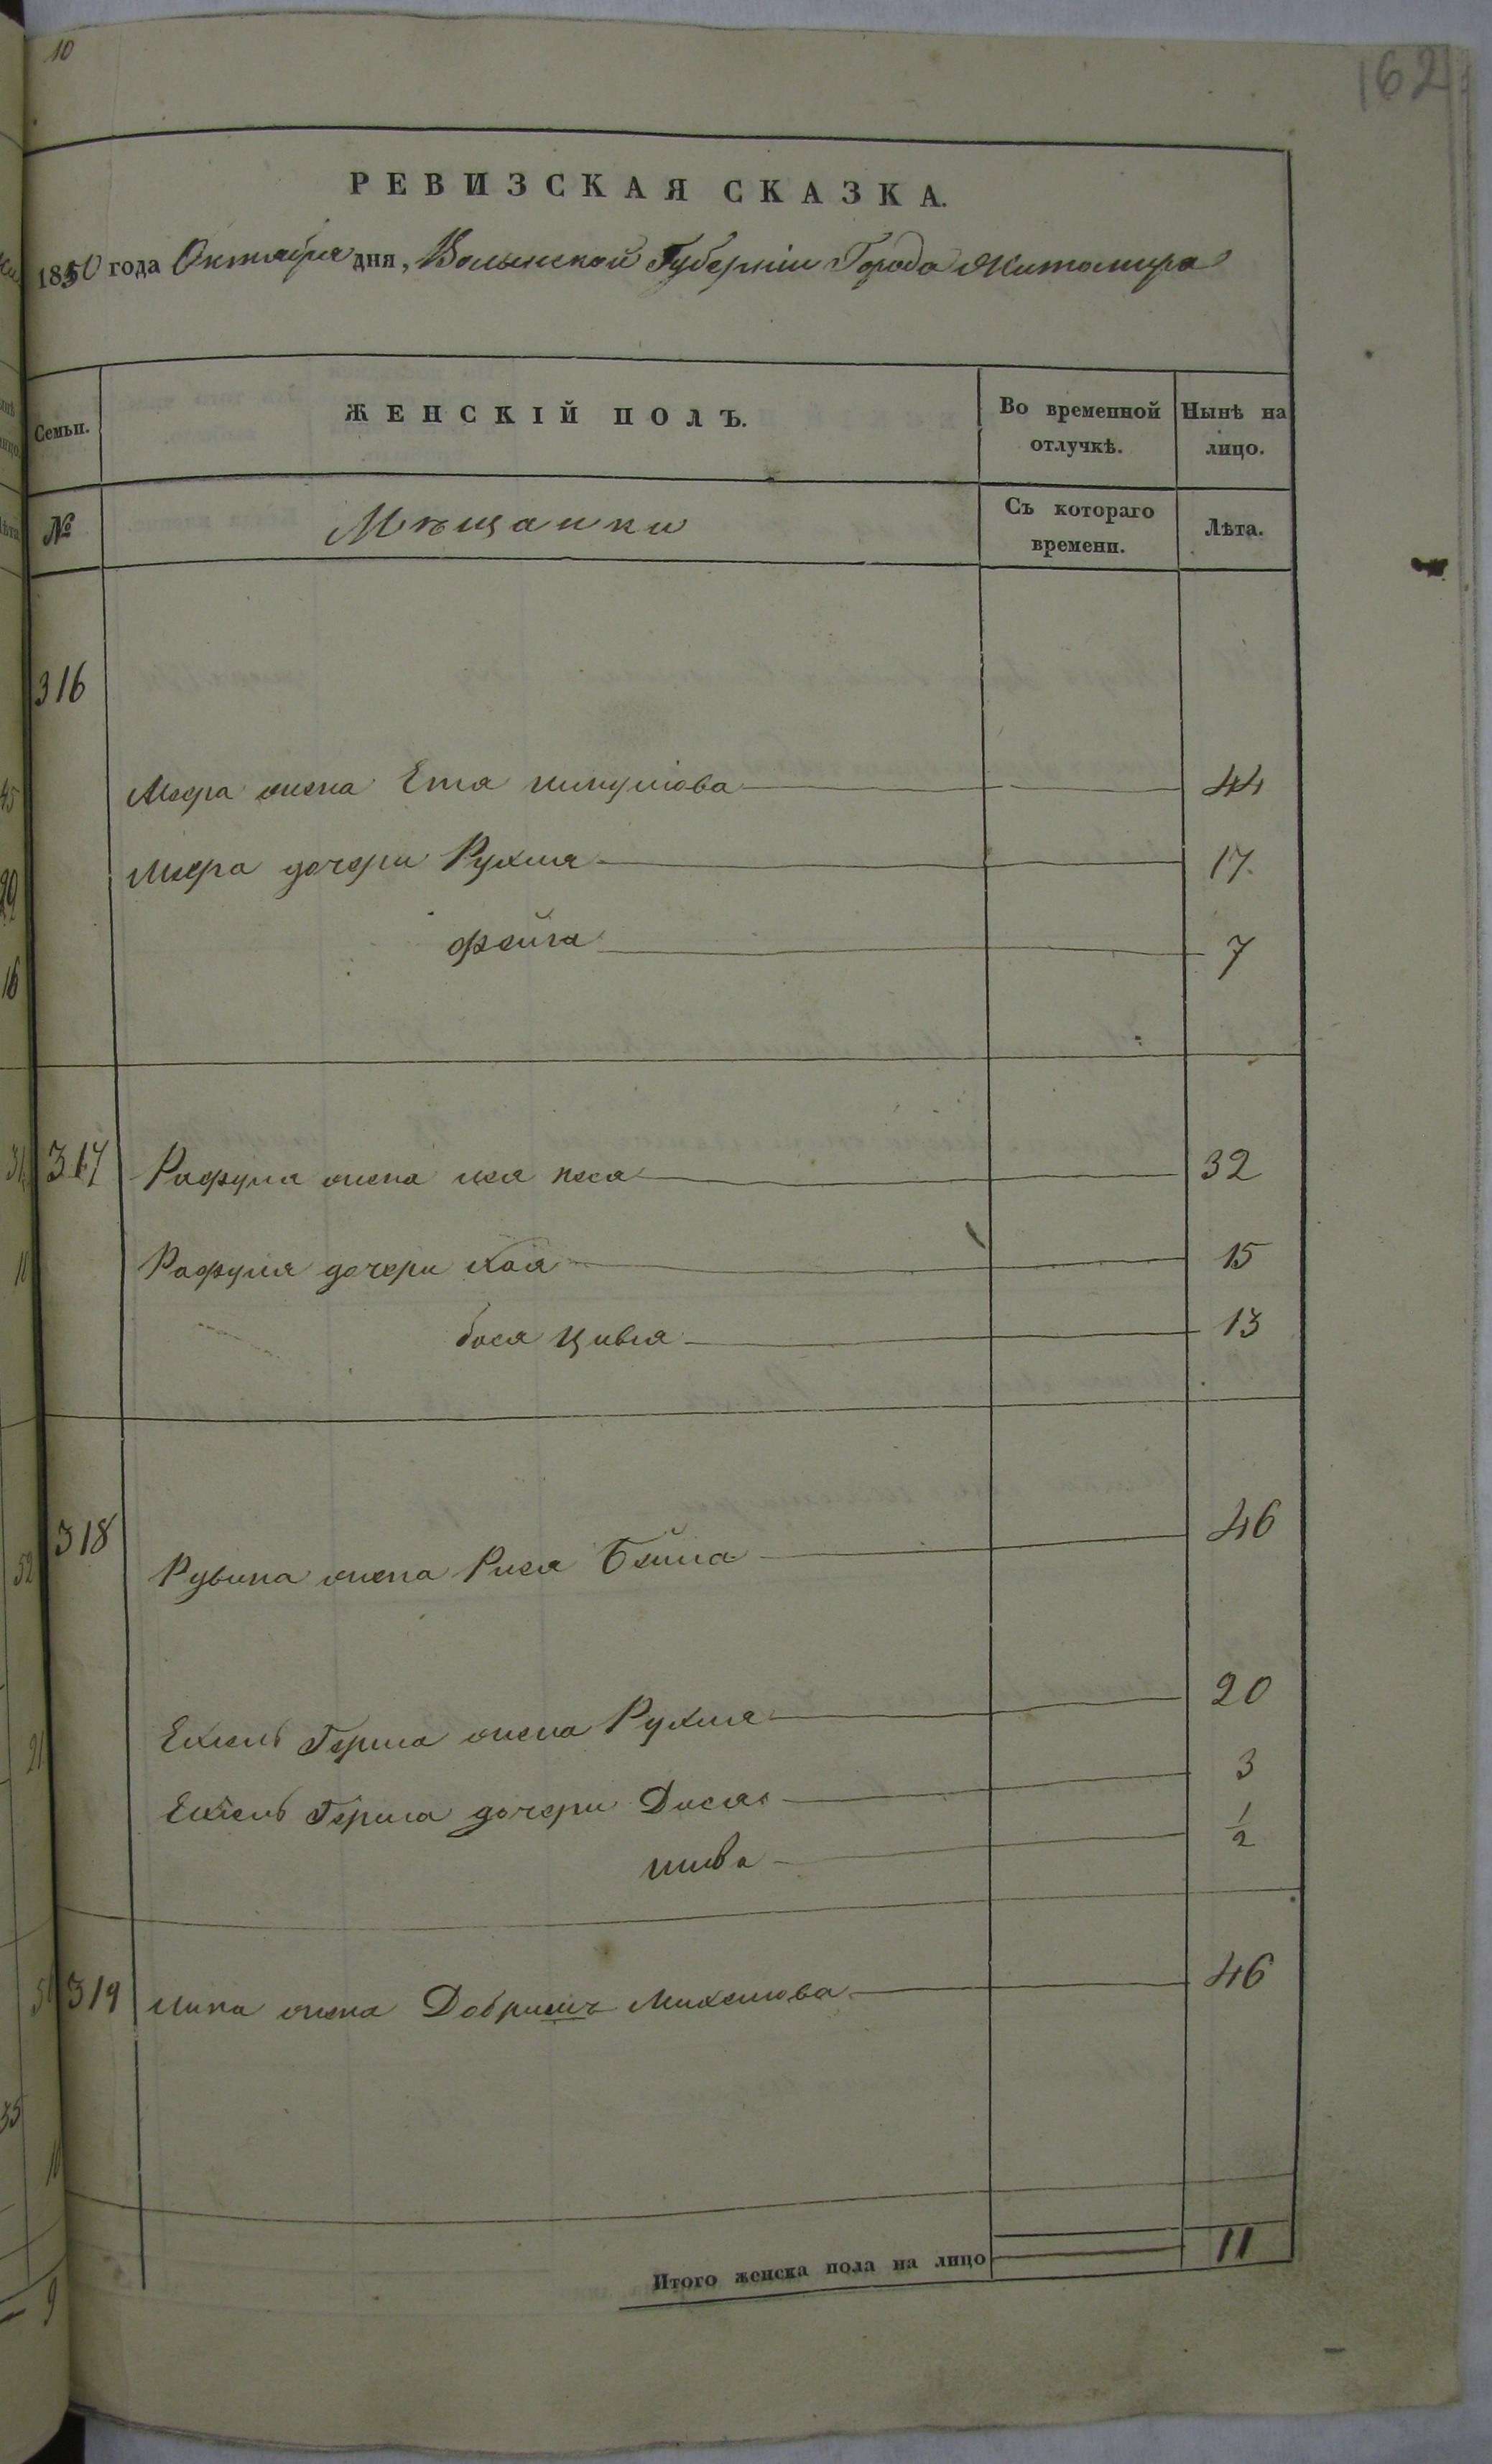 10
162
РЕВИЗСКАЯ СКАЗКА.
1850 года Октября дня, Волынской Губерніи Города Житомира
Семьи.
ЖЕНСКІЙ ПОЛЪ.
Во временной отлучкѣ.
Нынѣ на лицо.
№
Мѣщанки
Съ котораго времени.
Лѣта.
316
жена Ета 44
дочери Рухля 17.
Фейга 7
317 Рафула жена Песя 32
Рафуля дочери Хая 15
бася Цивья 13
318
Рувина жена Рися Бейла 46
Ехіель Герша жена Рухля 20
Ехіель Герша дочери Двося 3
1/2
319 жена Добришъ 46
Итого женска пола на лицо 11
45
29
16
31
11
52
21
35
9